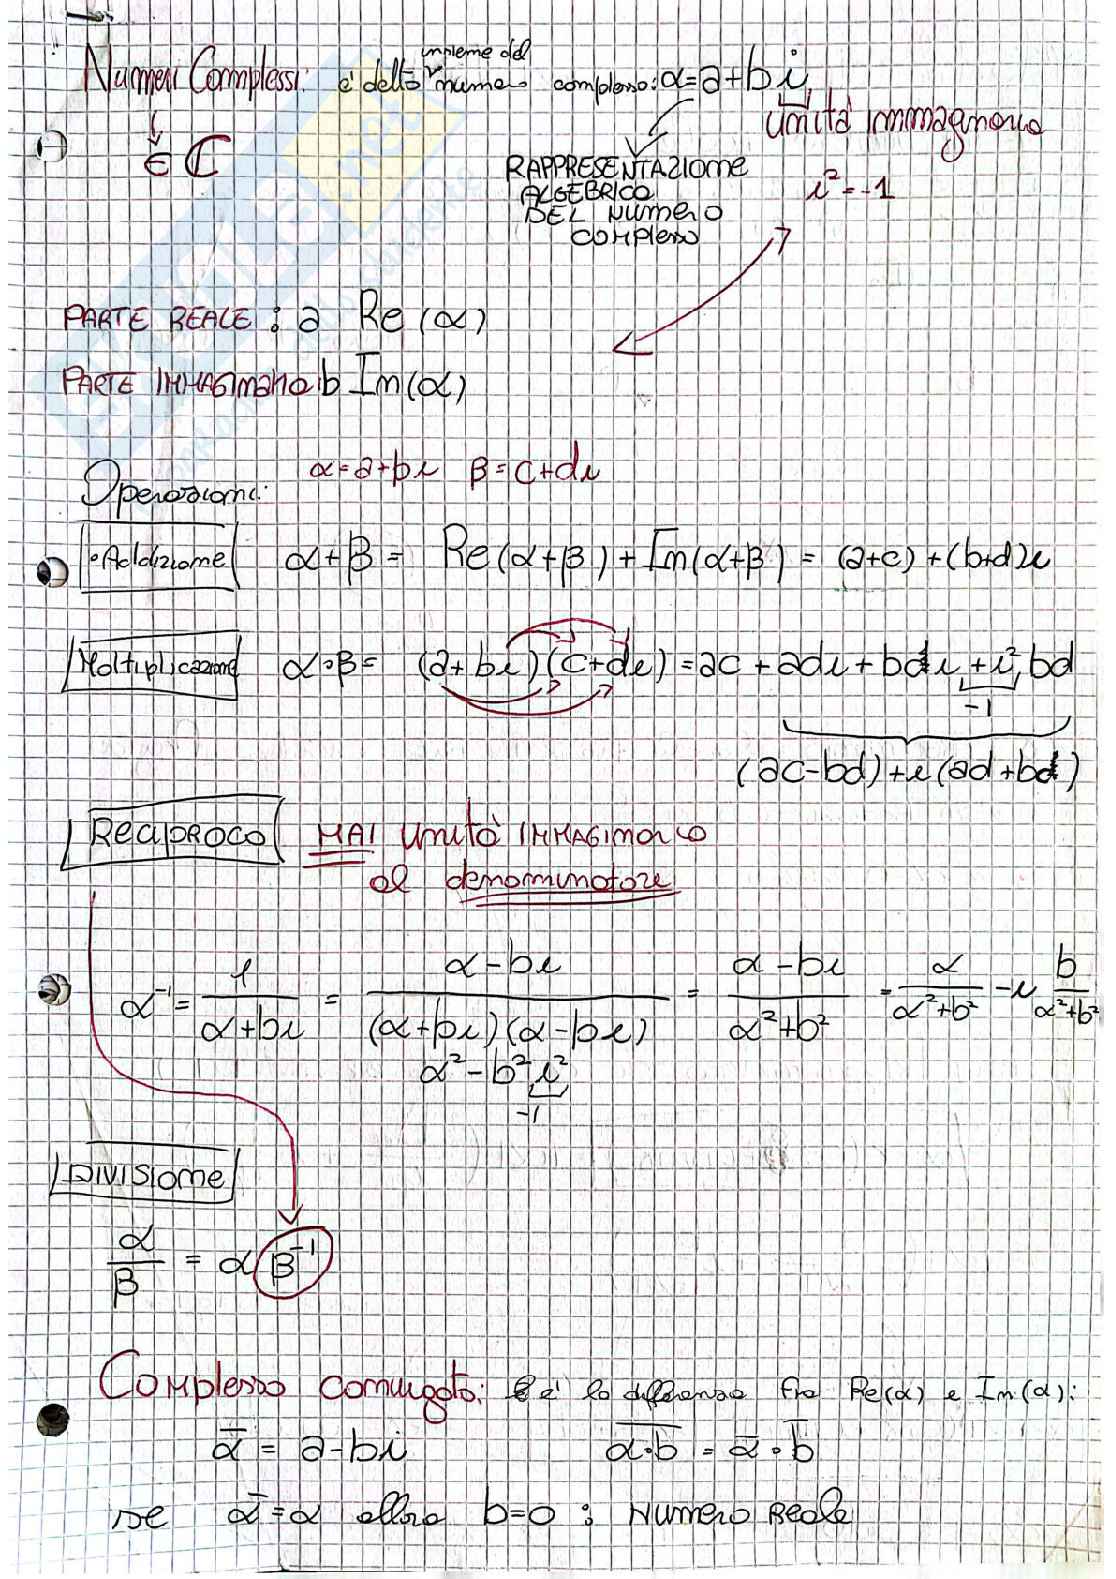 insieme del
Numeri Complessi: è detto numero complesso: α=a+bi
unità immaginaria
∈ ℂ
RAPPRESENTAZIONE
ALGEBRICA
DEL NUMERO
COMPLESSO
i²=-1
PARTE REALE: a Re(α)
PARTE IMMAGINARIA: b Im(α)
α=a+bi β=c+di
Operazioni:
•Addizione α+β = Re(α+β)+Im(α+β) = (a+c)+(b+d)i
Moltiplicazione α•β= (a+bi)(c+di)=ac+adi+bci+i²bd
-1
(ac-bd)+i(ad+bc)
RECIPROCO MAI unità IMMAGINARIA
al denominatore
α⁻¹= 1/(α+bi) = (α-bi)/((α+bi)(α-bi)) = (α-bi)/(α²+b²) = α/(α²+b²) -i b/(α²+b²)
α²-b²i²
-1
DIVISIONE
α/β = α β⁻¹
Complesso coniugato: è la differenza fra Re(α) e Im(α):
ᾱ = a-bi α̅•̅b̅ = ᾱ•b̅
se ᾱ=α allora b=0: Numero Reale